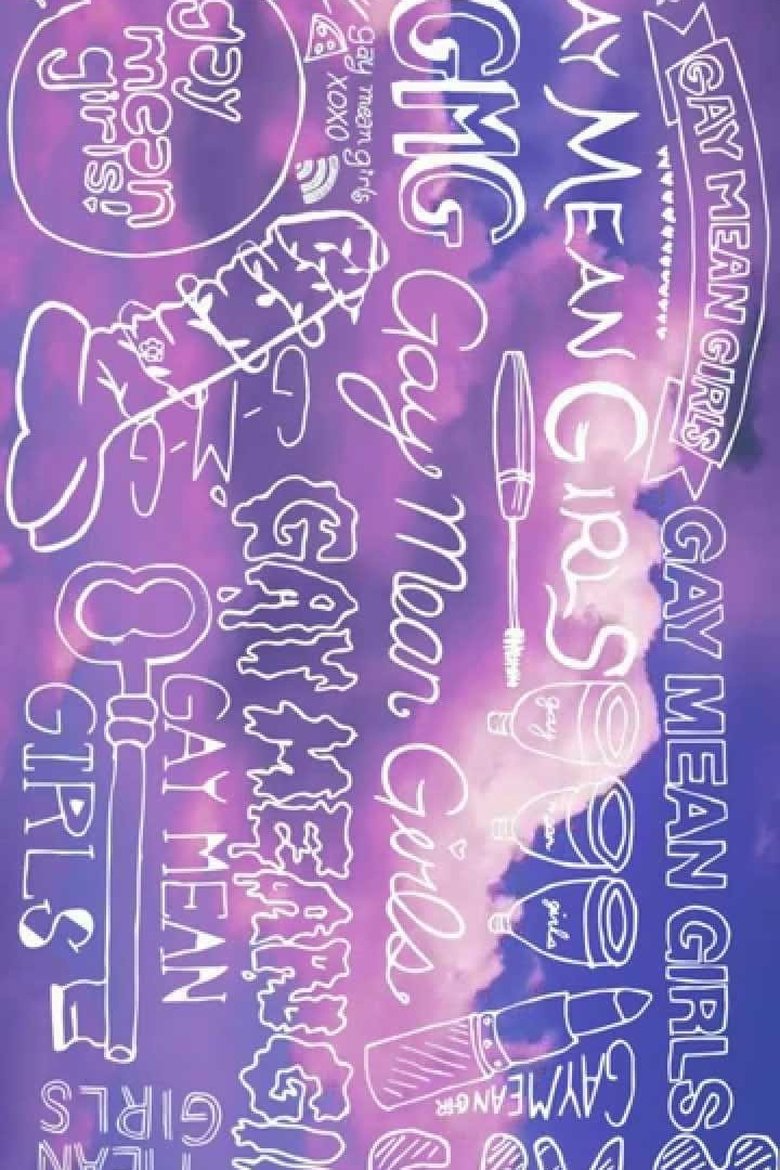 GAY MEAN GIRLS
GAY MEAN GIRLS
AY MEAN GIRLS
gay
mean
girls
GAYMEANGIR
GMG
Gay Mean Girls
gay mean girls
XOXO
GAY MEAN GI
G
G
gay
mean
girls!
GAY MEAN
GIRLS
GIRLS
MEAN